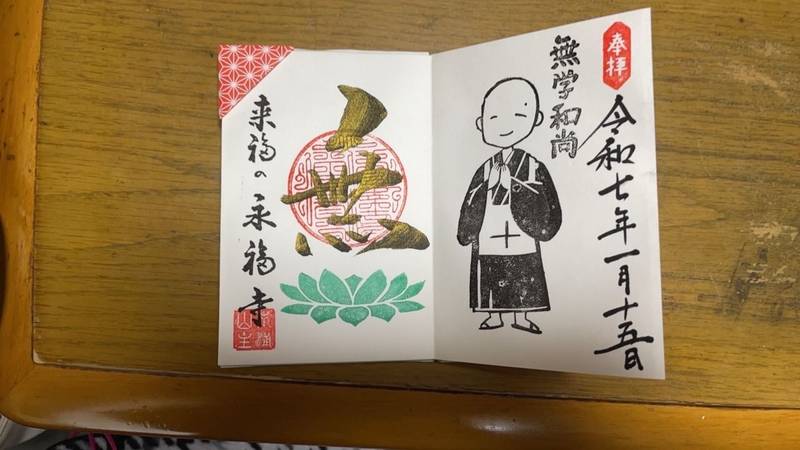 奉拝
令和七年一月十五日
無学和尚
無
来福の永福寺